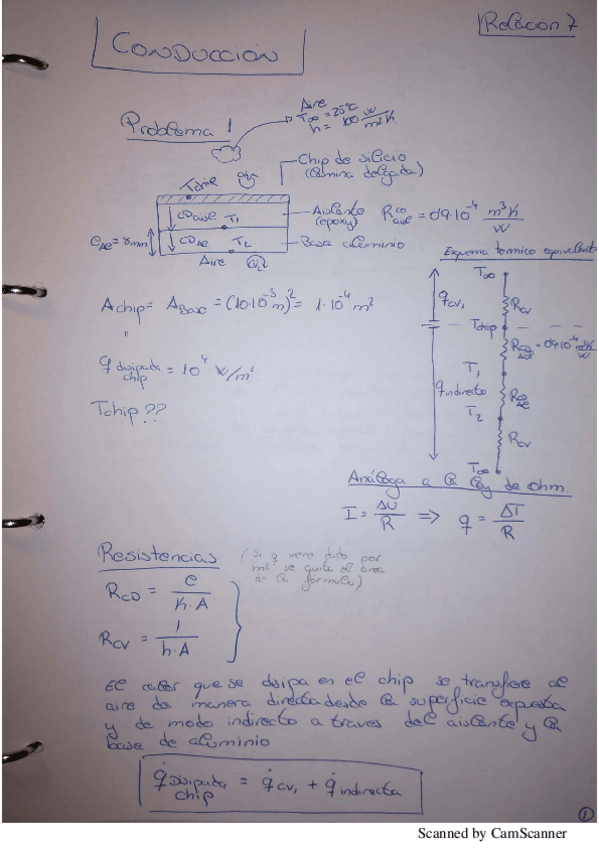 Relacion 7
CONDUCCIÓN
Problema 1
Aire
T∞ = 25ºC
h = 100 W/m²K
Chip de silicio
(lamina delgada)
Aislante
(epoxy)
Base aluminio
T1
T2
Aire
e_Ae = 8mm
m³K/W
Esquema termico equivalente
T∞
q_cv1
R_cv
Tchip
T1
q indirecto
T2
R_cv
T∞
Achip = A_Base = (10·10⁻³m)² = 1·10⁻⁴ m²
q disipada chip = 10⁴ W/m²
Tchip??
Análoga a la ley de ohm.
I = ΔU/R ⇒ q = ΔT/R
Resistencias
(si q viene dado por
m² se quita el area
de la fórmula)
R_CD = e/(k·A)
R_CV = 1/(h·A)
El calor que se disipa en el chip se transfiere al
aire de manera directa desde la superficie expuesta
y de modo indirecto a traves del aislante y la
base de aluminio
q̇ disipada chip = q̇_cv1 + q̇ indirecta
1
Scanned by CamScanner